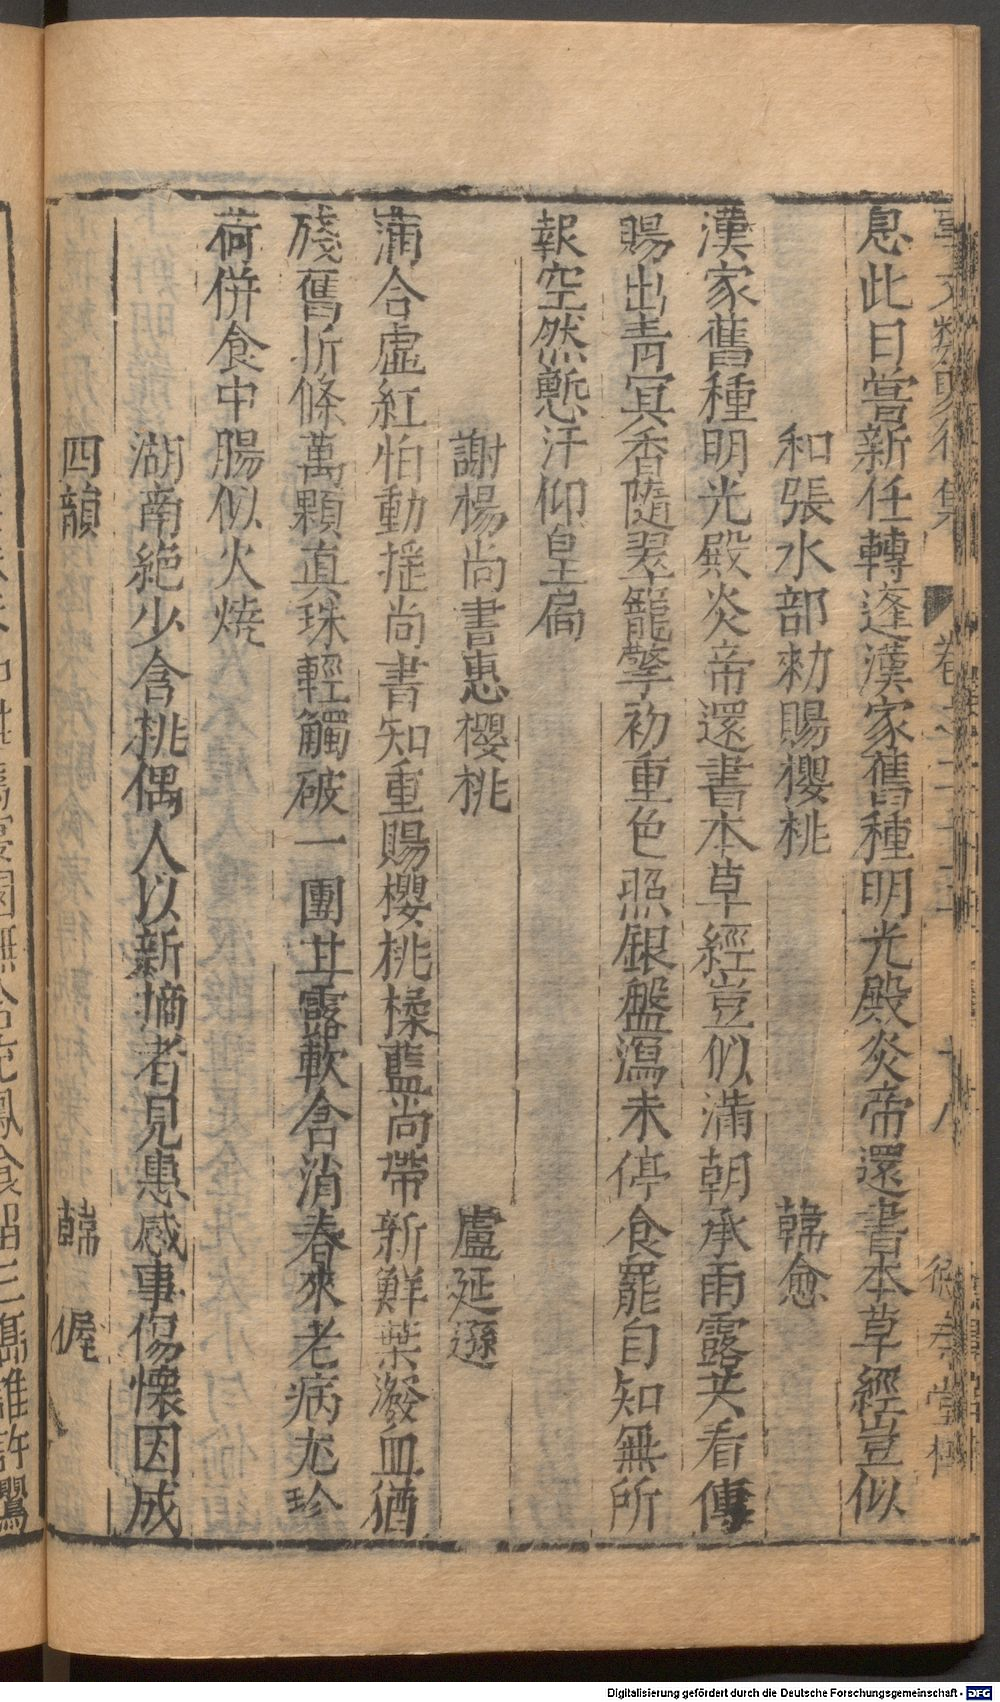 息此日嘗新任轉逢漢家舊種明光殿炎帝還書本草經豈似
和張水部勑賜櫻桃 韓愈
漢家舊種明光殿炎帝還書本草經豈似滿朝承雨露共看傳
賜出青冥香隨翠籠擎初重色照銀盤瀉未停食罷自知無所
報空然慙汗仰皇扃
謝楊尚書惠櫻桃 盧延遜
滿合虛紅怕動搖尚書知重賜櫻桃揉藍尚帶新鮮葉潑血猶
殘舊折條萬顆真珠輕觸破一團甘露軟含消春來老病尤珍
荷併食中腸似火燒
湖南絶少含桃偶人以新摘者見惠感事傷懷因成
四韻 韓偓
Digitalisierung gefördert durch die Deutsche Forschungsgemeinschaft - DFG